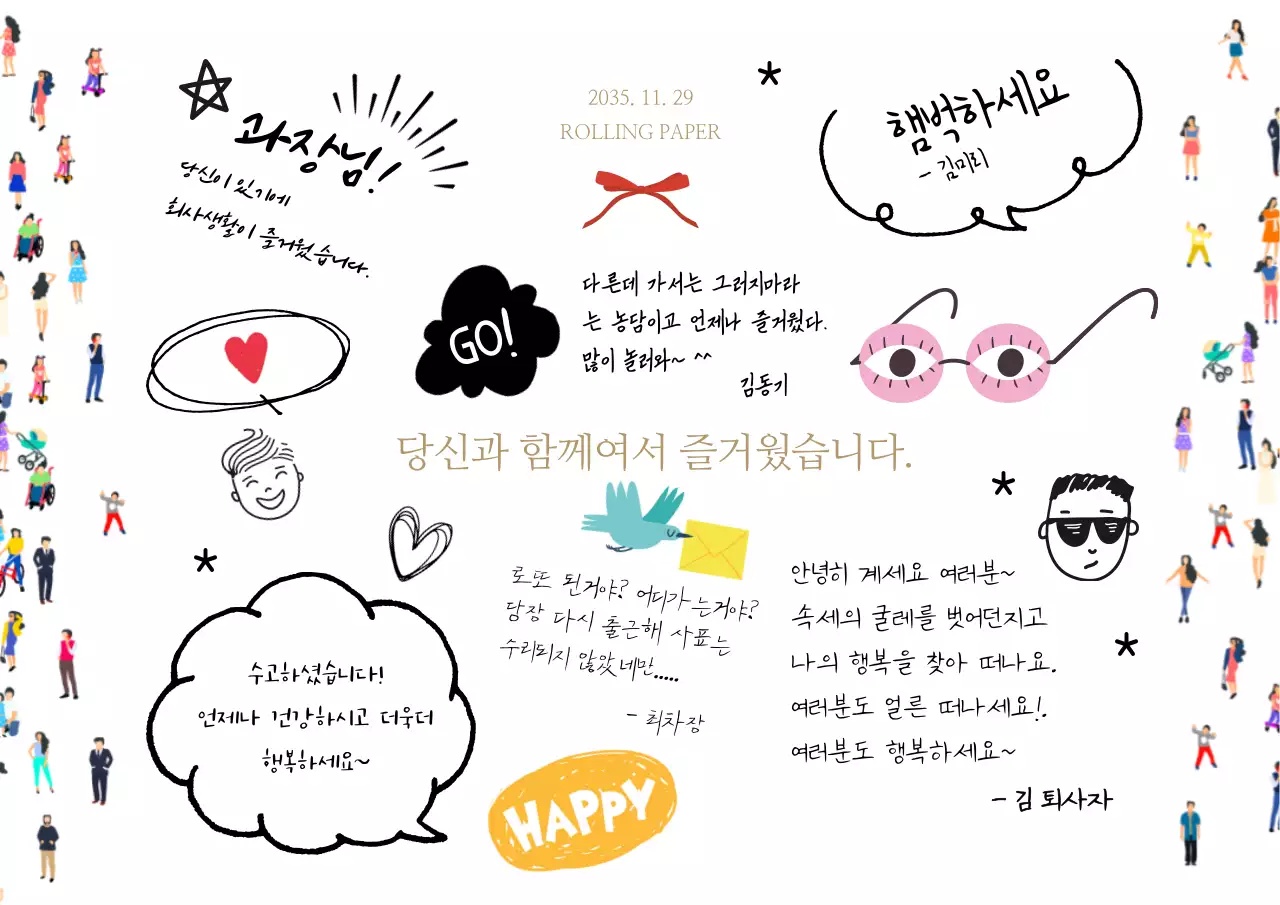 2035. 11. 29
ROLLING PAPER
과장님!
당신이 있기에
회사생활이 즐거웠습니다.
햄벅하세요
- 김미리
GO!
다른데 가서는 그러지마라
는 농담이고 언제나 즐거웠다.
많이 놀러와~ ^^
김동기
당신과 함께여서 즐거웠습니다.
로또 된거야? 어디가는거야?
당장 다시 출근해 사표는
수리되지 않았네만.....
- 최차장
수고하셨습니다!
언제나 건강하시고 더욱더
행복하세요~
HAPPY
안녕히 계세요 여러분~
속세의 굴레를 벗어던지고
나의 행복을 찾아 떠나요.
여러분도 얼른 떠나세요!.
여러분도 행복하세요~
- 김 퇴사자